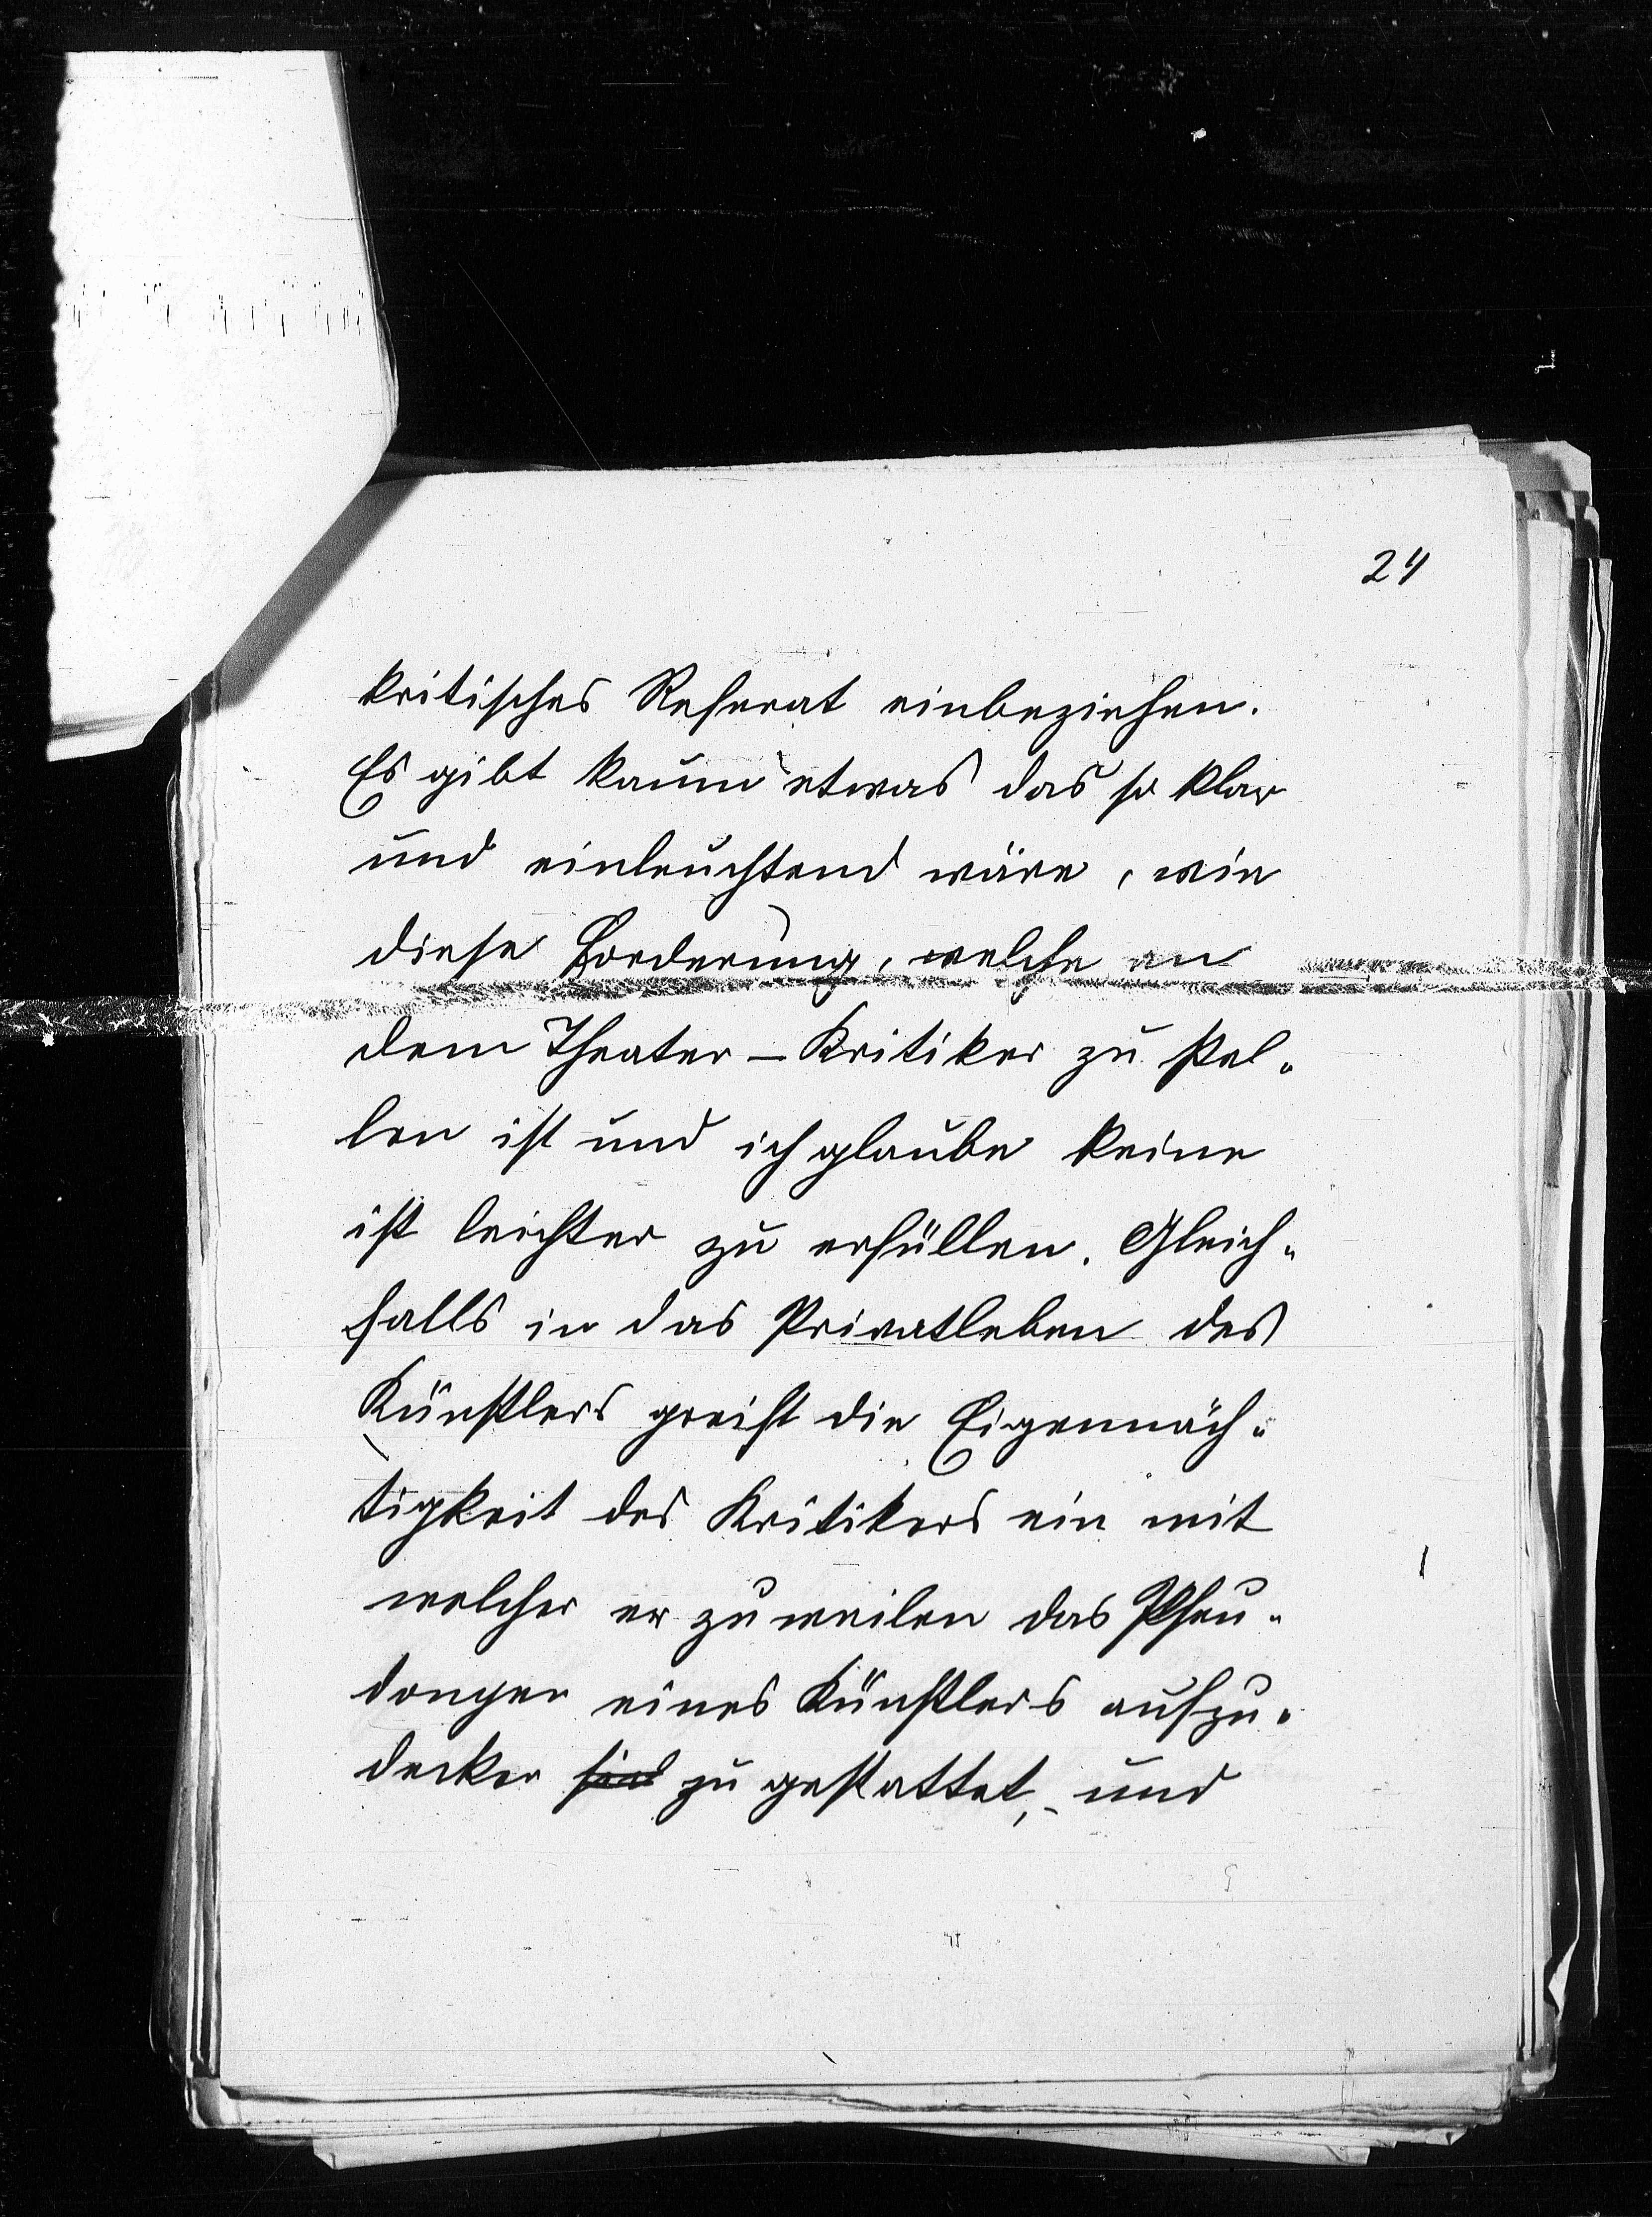 24
kritisches Referat einbeziehen.
Es gibt kaum etwas das so klar
und einleuchtend wäre, wie
diese Forderung, welche an
dem Theater-Kritiker zu stel-
len ist und ich glaube keine
ist leichter zu erfüllen. Gleich-
falls in das Privatleben des
Künstlers greift die Eigenmäch-
tigkeit des Kritikers ein mit
welcher er zuweilen das Pseu-
donym eines Künstlers aufzu-
decken sich zu gestattet, und